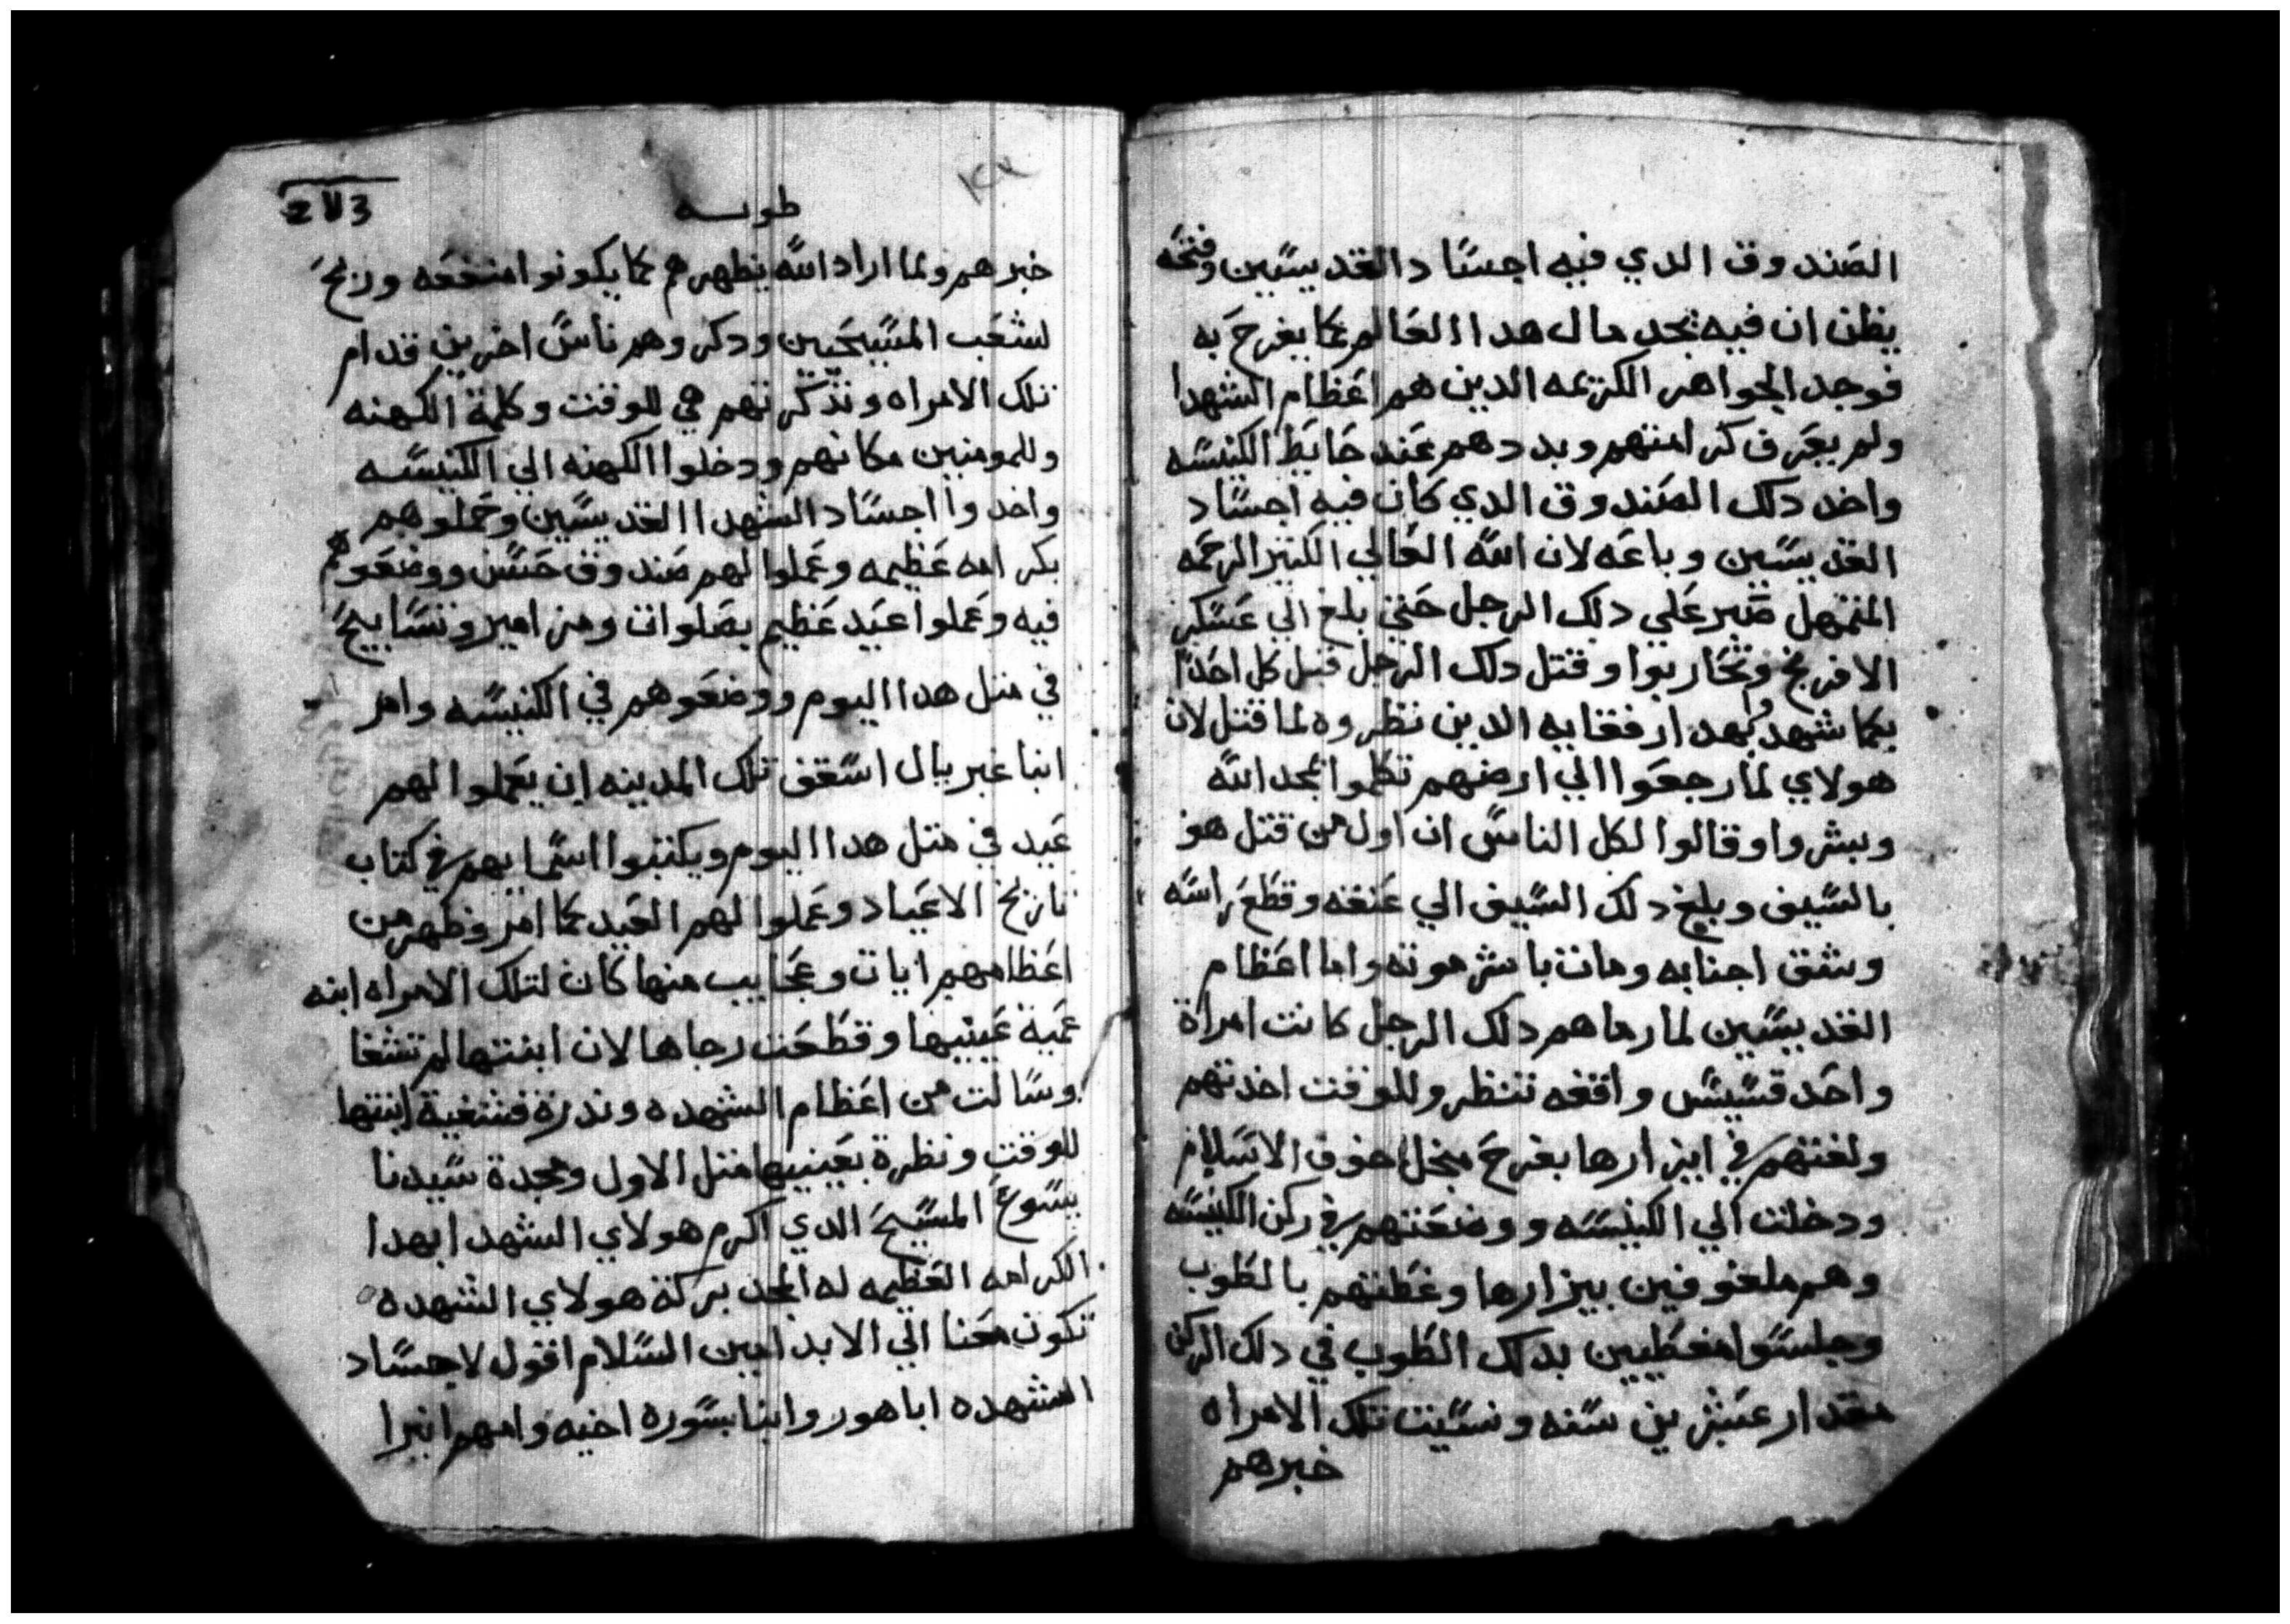 الصندوق الدي فيه اجساد القديسين وفتحه
يظن ان فيه يجد مال هدا العالم كما يفرح به
فوجد الجواهر الكريمه الدين هم اعظام الشهدا
ولم يعرف كرامتهم وبددهم عند حايط الكنيسه
واخد دلك الصندوق الدي كان فيه اجساد
القديسين وباعه لان الله العالي الكتير الرحمه
المتمهل صبر علي دلك الرجل حتي بلغ الي عسكر
الافرنج وتحاربوا وقتل دلك الرجل قبل كل احدا
بما شهدوا بهدا رفقايه الدين نظروه لما قتل لان
هولاي لما رجعوا الي ارضهم تكلموا بمجد الله
وبشروا وقالوا لكل الناس ان اول من قتل هو
بالسيف وبلغ دلك السيف الي عنقه وقطع راسه
وشقق اجنابه ومات باشر موته واما اعظام
القديسين لما رماهم دلك الرجل كانت امراة
واحد قسيس واقفه تنظر وللوقت اخدتهم
ولفتهم في ايزارها بفرح من الاسلام
ودخلت الي الكنيسه ووضعتهم في ركن الكنيسه
وهم ملفوفين بيزارها وغطتهم بالطوب
وجلسوا مغطيين بدلك الطوب في دلك الركن
مقدار عشرين سنه ونسيت تلك الامراه
خبرهم
طوبه
خبرهم ولما اراد الله يظهرهم كما يكونوا منفعه وربح
لشعب المسيحيين ودكروهم ناس اخرين قدام
تلك الامراه وتدكرتهم هي للوقت وكلمة الكهنه
وللمومنين مكانهم ودخلوا الكهنه الي الكنيسه
واخدوا اجساد الشهدا القديسين وحملوهم
بكرامه عظيمه وعملوا لهم صندوق حسن ووضعوهم
فيه وعملوا عيد عظيم بصلوات ومزامير وتسابيح
في متل هدا اليوم ووضعوهم في الكنيسه وامر
انبا غبريال اسقف تلك المدينه ان يعملوا لهم
عيد في متل هدا اليوم ويكتبوا اسمايهم في كتاب
تاريخ الاعياد وعملوا لهم العيد كما امر وظهر من
اعظامهم ايات وعجايب منها كان لتلك الامراه ابنه
عمية عينيها وقطعت رجاها لان ابنتها لم تشفا
وسالت من اعظام الشهده وندرة فشفية ابنتها
للوقت ونظرة بعينيها متل الاول ومجدة سيدنا
يسوع المسيح الدي اكرم هولاي الشهدا بهدا
الكرامه العظيمه له المجد بركة هولاي الشهده
تكون معنا الي الابد امين السلام اقول لاجساد
الشهده اباهور وانبا بسوره اخيه وامهم انبرا